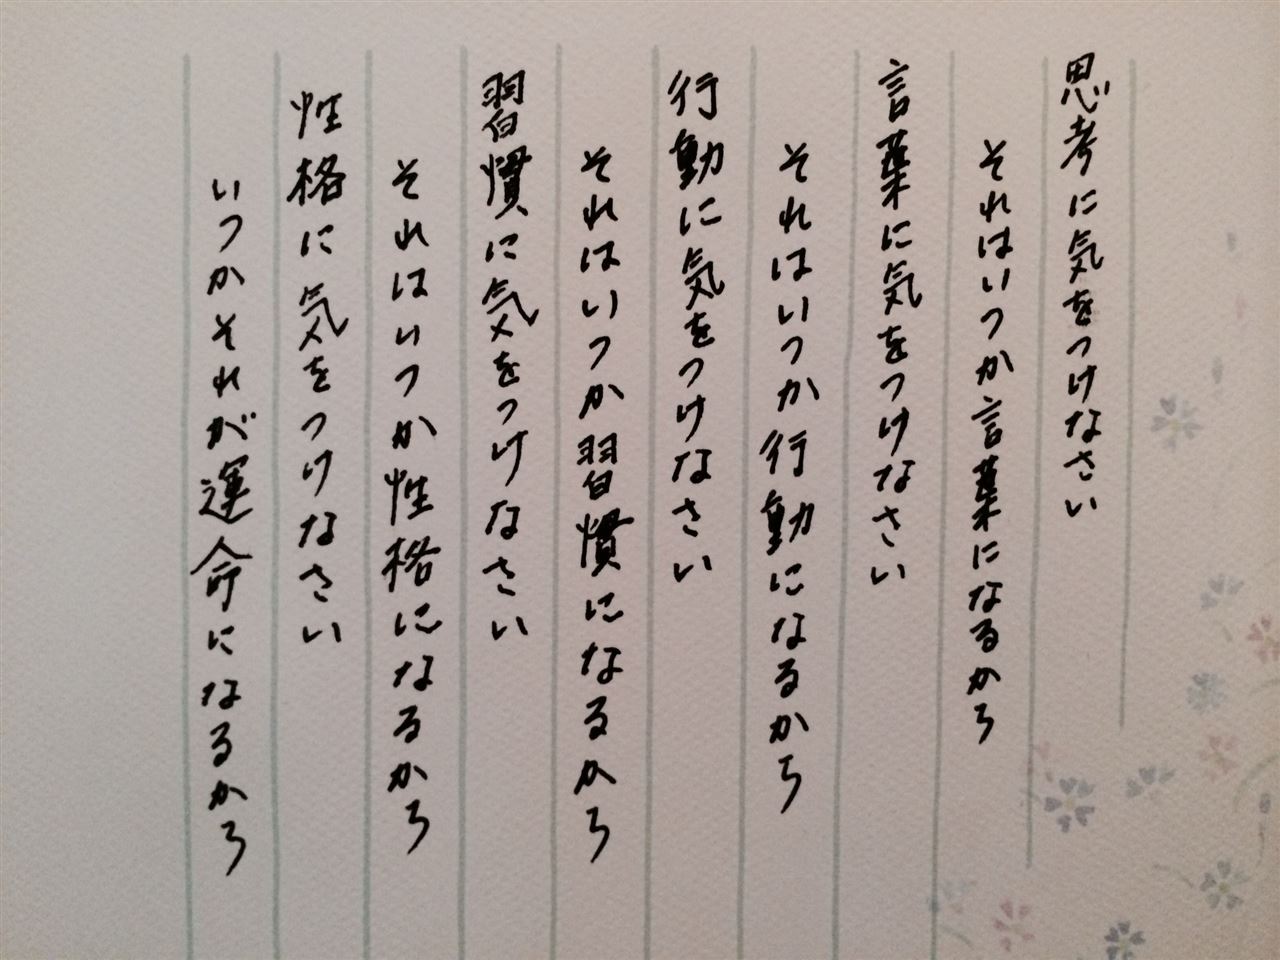 思考に気をつけなさい
それはいつか言葉になるから
言葉に気をつけなさい
それはいつか行動になるから
行動に気をつけなさい
それはいつか習慣になるから
習慣に気をつけなさい
それはいつか性格になるから
性格に気をつけなさい
いつかそれが運命になるから